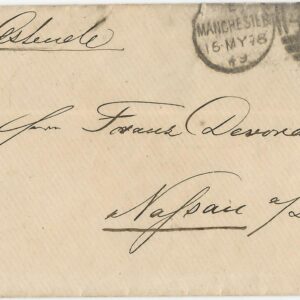 Ostende
MANCHESTER
16·MY78
49
Herrn Franz Devora
Nassau a/